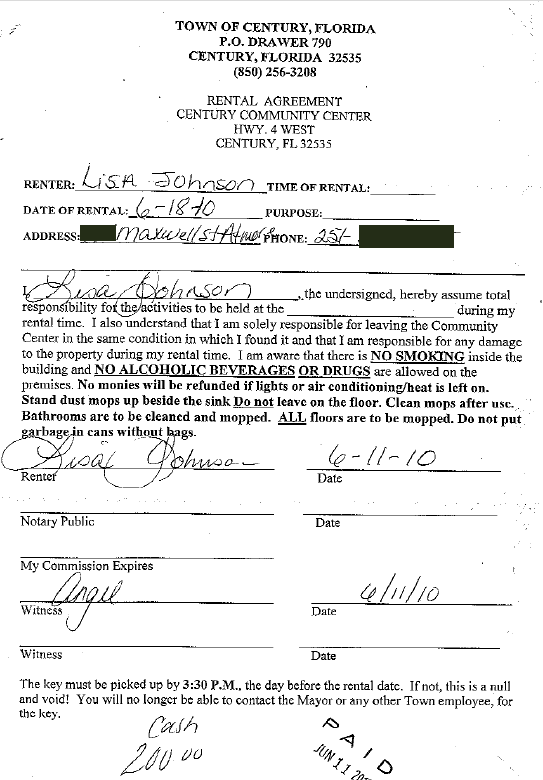 TOWN OF CENTURY, FLORIDA
P.O. DRAWER 790
CENTURY, FLORIDA 32535
(850) 256-3208
RENTAL AGREEMENT
CENTURY COMMUNITY CENTER
HWY. 4 WEST
CENTURY, FL 32535
RENTER: Lisa Johnson TIME OF RENTAL:
DATE OF RENTAL: 6-18-10 PURPOSE:
ADDRESS: Maxwell st Atmore PHONE: 251-
I Lisa Johnson, the undersigned, hereby assume total
responsibility for the activities to be held at the during my
rental time. I also understand that I am solely responsible for leaving the Community
Center in the same condition in which I found it and that I am responsible for any damage
to the property during my rental time. I am aware that there is NO SMOKING inside the
building and NO ALCOHOLIC BEVERAGES OR DRUGS are allowed on the
premises. No monies will be refunded if lights or air conditioning/heat is left on.
Stand dust mops up beside the sink Do not leave on the floor. Clean mops after use.
Bathrooms are to be cleaned and mopped. ALL floors are to be mopped. Do not put
garbage in cans without bags.
Lisa Johnson 6-11-10
Renter Date
Notary Public Date
My Commission Expires
Angie 6/11/10
Witness Date
Witness Date
The key must be picked up by 3:30 P.M., the day before the rental date. If not, this is a null
and void! You will no longer be able to contact the Mayor or any other Town employee, for
the key.
Cash
200.00
PAID
JUN 11